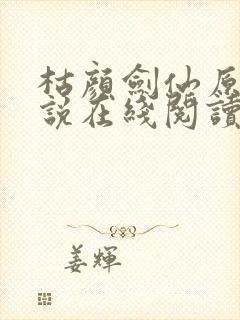 枯顏劍仙原
說在綫閱讀
姜輝